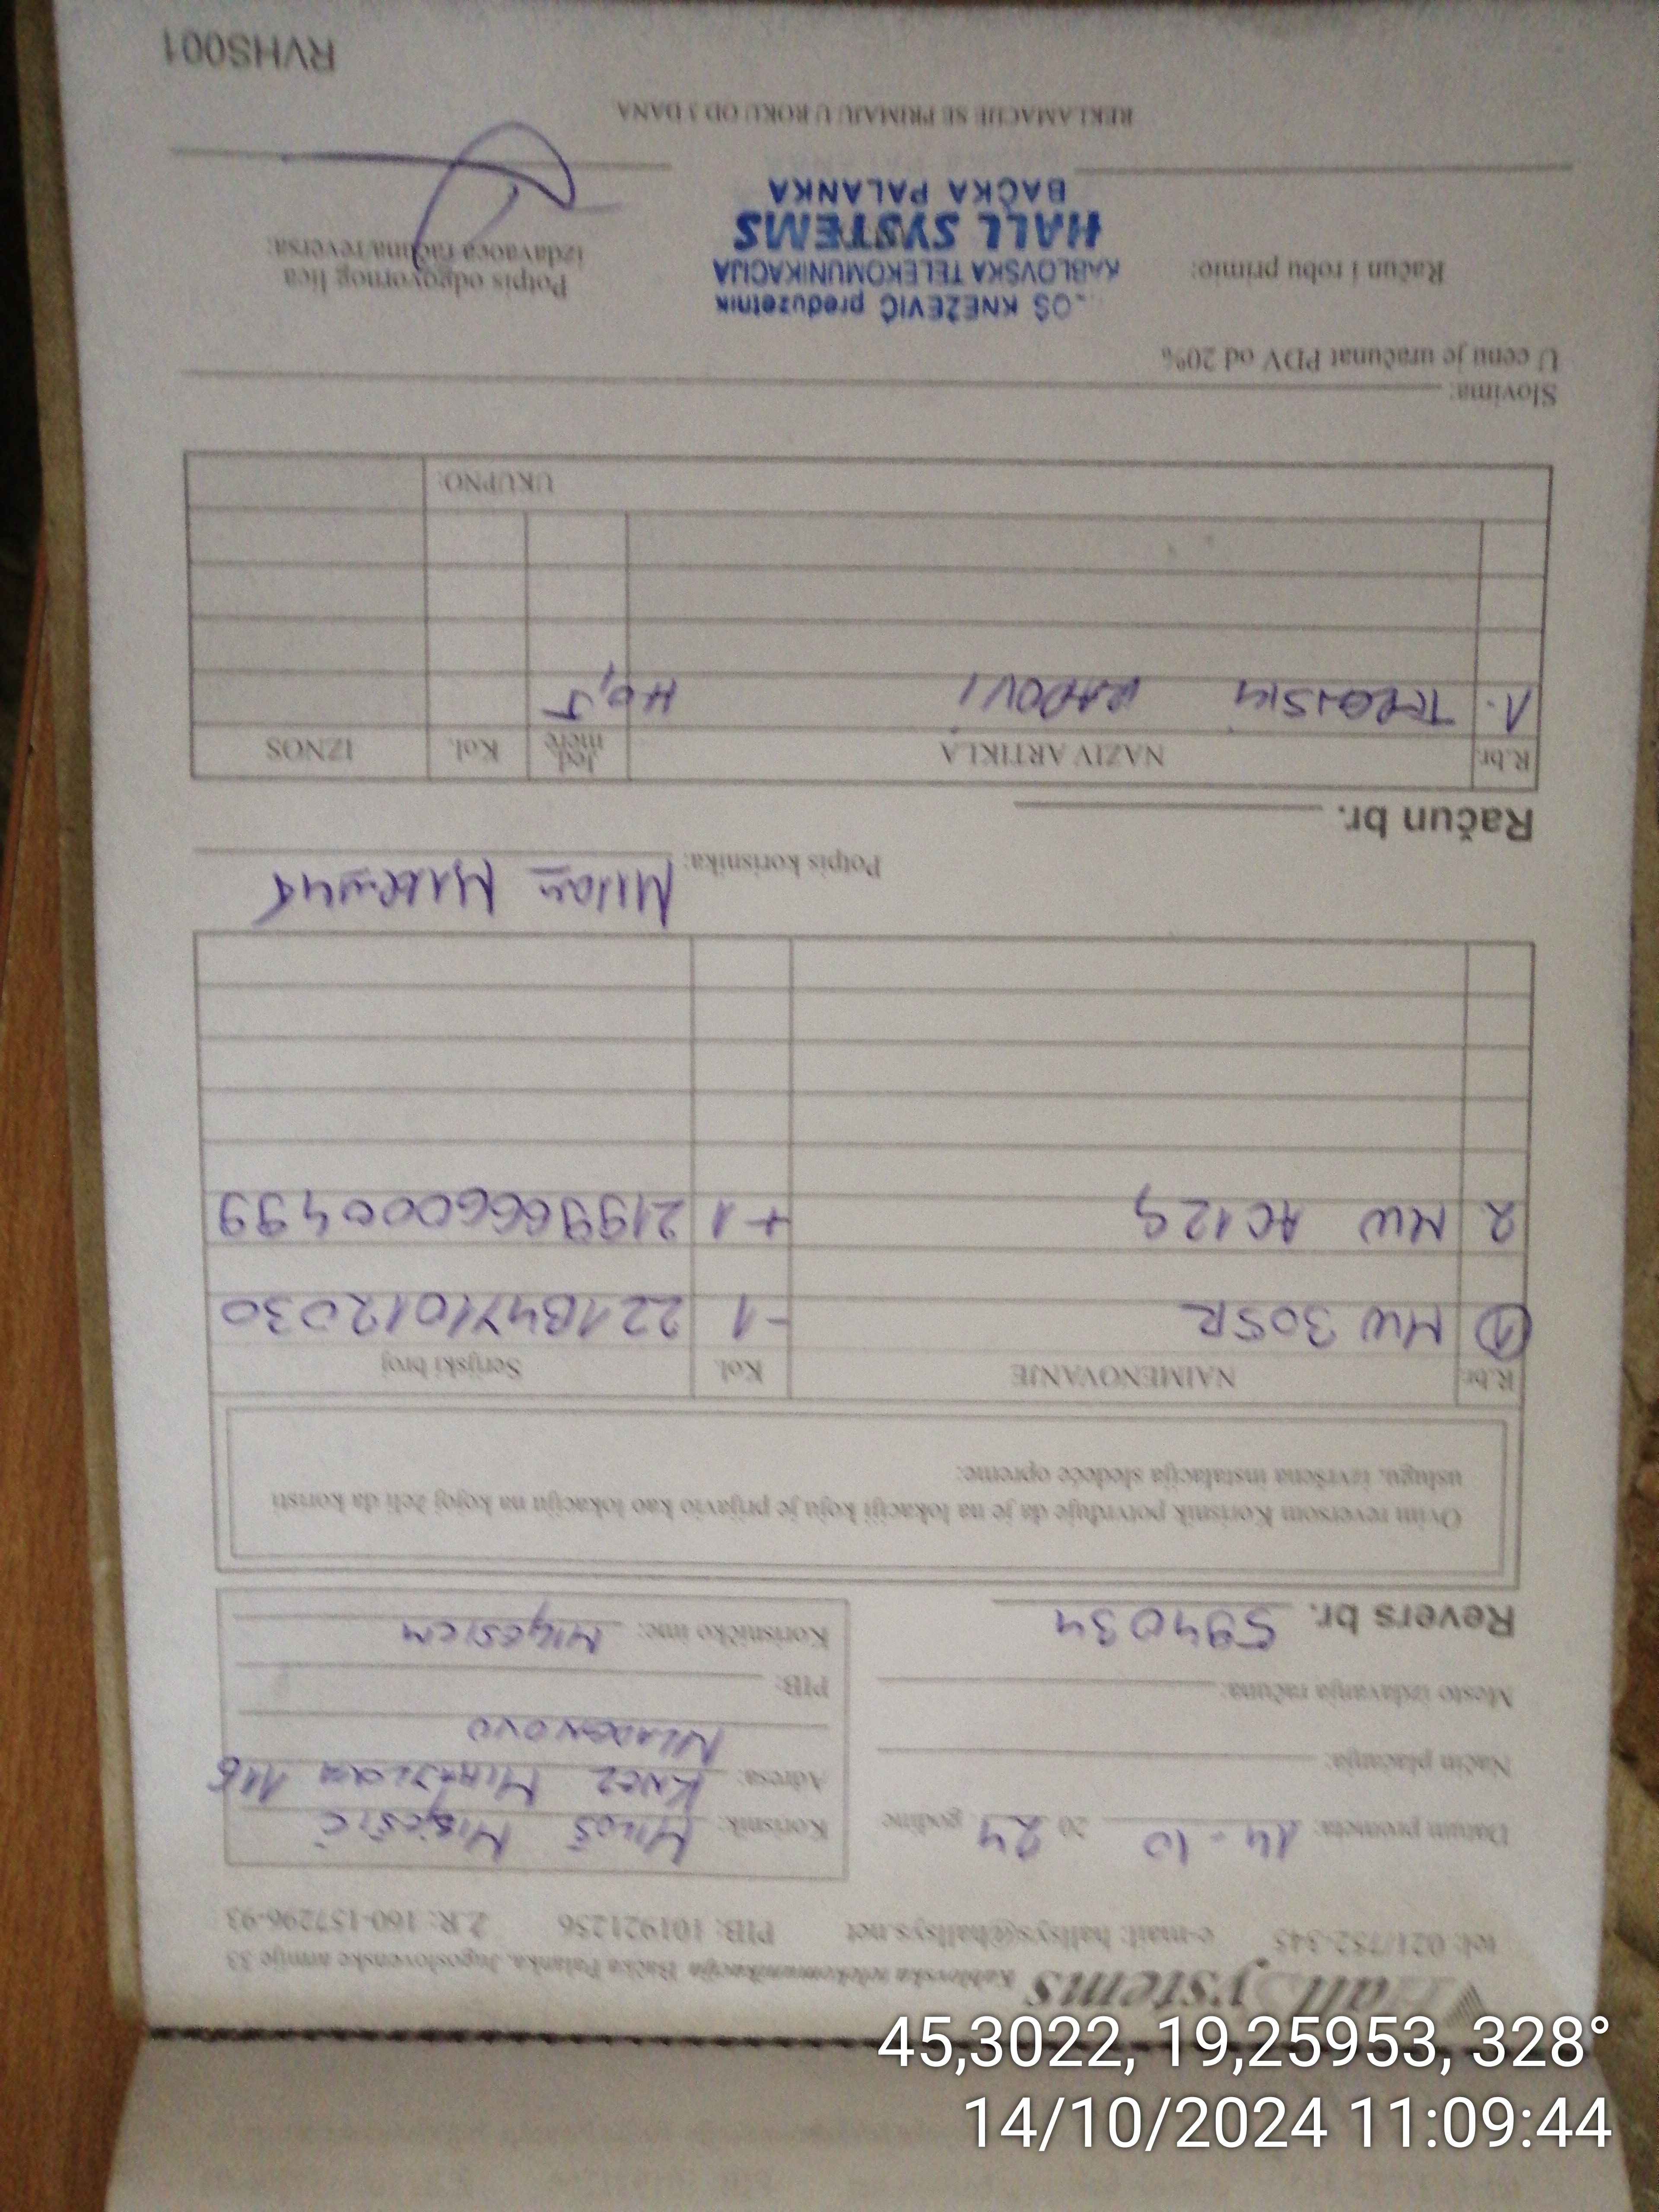 Hall Systems Kablovska telekomunikacija Bačka Palanka, Jugoslovenske armije 33
tel: 021/752-345 e-mail: hallsys@hallsys.net PIB: 101921256 Ž.R: 160-157296-93
Datum prometa: 14. 10 20 24 godine
Način plaćanja:
Mesto izdavanja računa:
Revers br. 594034
Korisnik: MILOŠ
Adresa: KNEZ MIHAJLOVA 116
MLADENOVO
PIB:
Korisničko ime:
Ovim reversom Korisnik potvrđuje da je na lokaciji koju je prijavio kao lokaciju na kojoj želi da koristi
uslugu, izvršena instalacija sledeće opreme:
R.br. NAIMENOVANJE Kol. Serijski broj
1 MW 305R -1 2218471012030
2 MW AC12G +1 2199666000499
Potpis korisnika:
Račun br.
R.br. NAZIV ARTIKLA Jed. mere Kol. IZNOS
1. RADOVI H 0,5
UKUPNO:
Slovima:
U cenu je uračunat PDV od 20%
Račun i robu primio:
OŠ KNEŽEVIĆ preduzetnik
KABLOVSKA TELEKOMUNIKACIJA
HALL SYSTEMS
BAČKA PALANKA
Potpis odgovornog lica
izdavaoca računa/reversa:
REKLAMACIJE SE PRIMAJU U ROKU OD 3 DANA
RVHS001
45,3022, 19,25953, 328°
14/10/2024 11:09:44